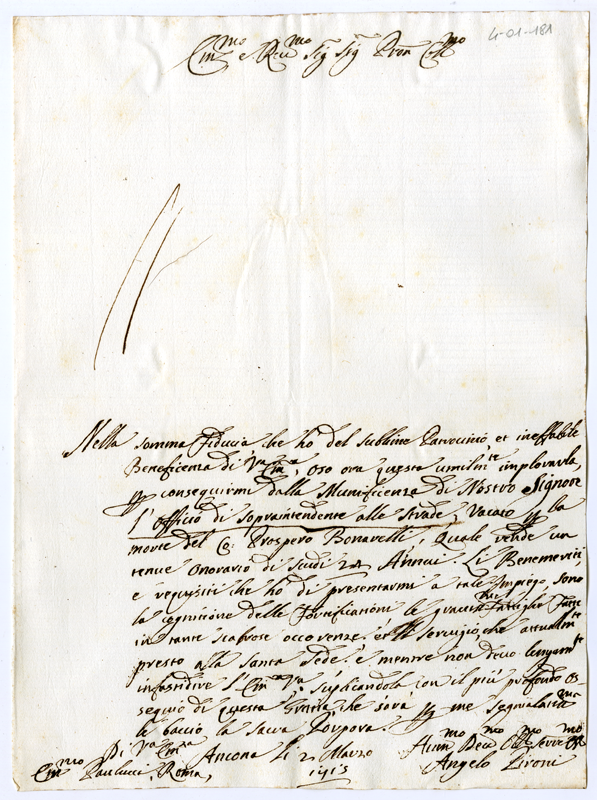 4-01-181
Em.mo e Rev.mo Sig.r Sig.r Pron Col.mo
Nella somma fiducia che ho del sublime Patrocinio, et ineffabile
Beneficenza di V.ra Em.za, oso ora questa umilm.te implorarla,
conseguirmi dalla Munificenza di Nostro Signore
l'Officio di Sopraintendente alle Strade, Vacato p la
morte del Co: Prospero Bonarelli, Quale rende un
tenue onorario di scudi 24 Annui. Li Benemeriti,
e requisiti che ho di presentarmi a tale Impiego, sono
la cognitione delle Fortificationi le gravi Fattighe Fatte
in tante scabrose occorenze, et il servizio, che attualm.te
presto alla Santa Sede. e mentre non devo lungam.te
infastidire l'Em.za V.ra, suplicandola con il più profondo os
sequio di questa Gratia che sara p me segnalatis.ma
le baccio la Sacra Porpora.
Di V.ra Em.za
Ancona li 2 Marzo
1715
Em.mo Paulucci, Roma,
Hum.mo Dev.mo Obb.mo Serv.re
Angelo